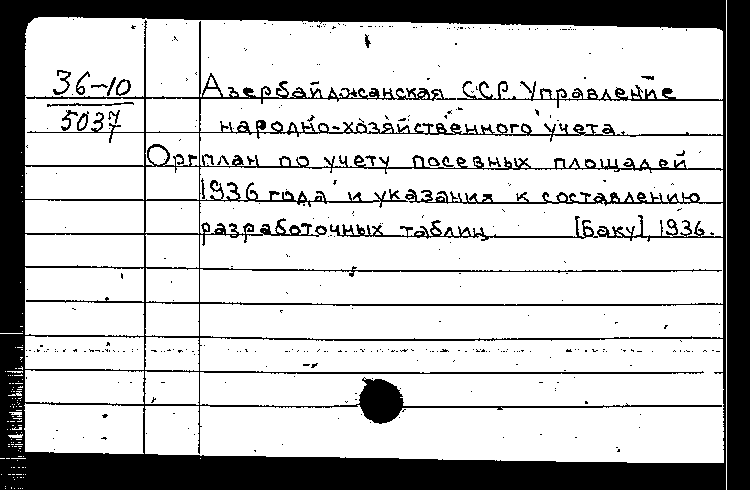 36-10
5037
Азербайджанская ССР. Управление
народно-хозяйственного учета.
Оргплан по учету посевных площадей
1936 года и указания к составлению
разработочных таблиц. [Баку], 1936.